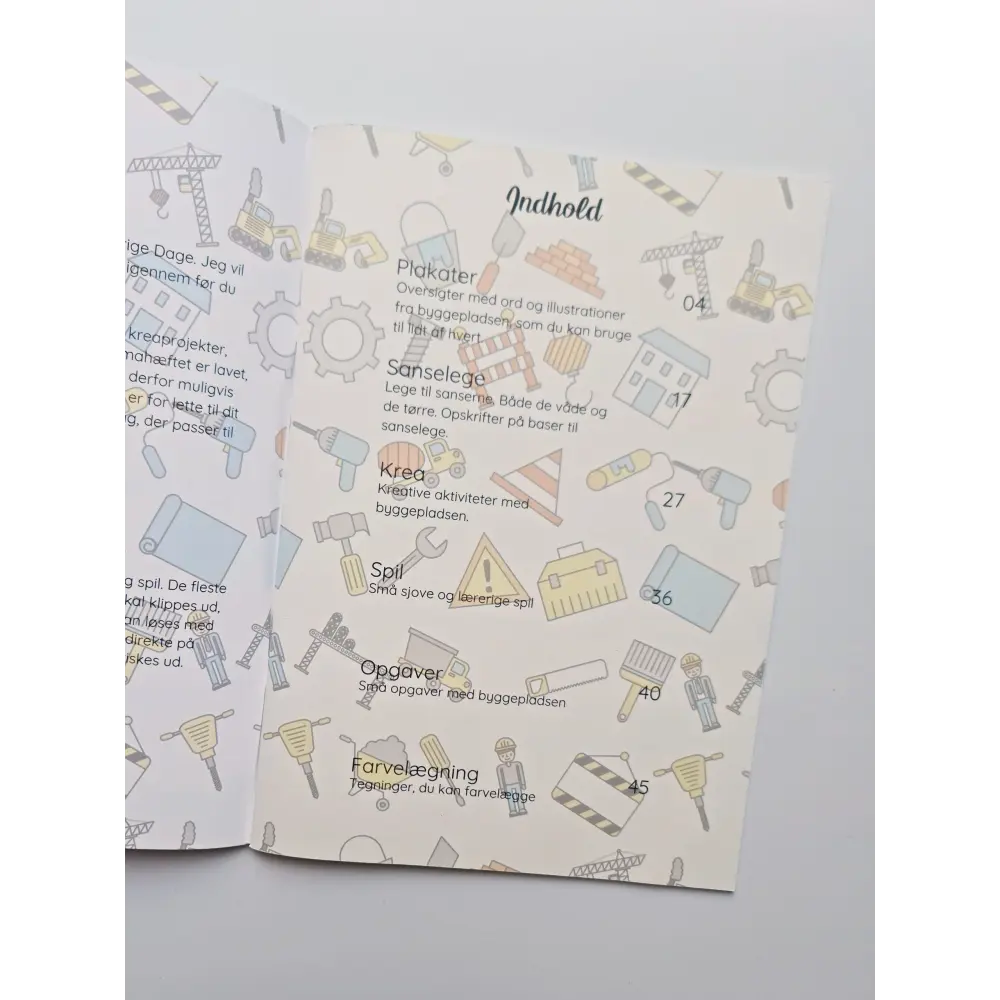 ige Dage. Jeg vil
igennem før du
kreaprojekter,
mahæftet er lavet,
derfor muligvis
er for lette til dit
g, der passer til
g spil. De fleste
kal klippes ud,
an løses med
direkte på
iskes ud.
Indhold
Plakater
Oversigter med ord og illustrationer
fra byggepladsen, som du kan bruge
til lidt af hvert
04
Sanselege
Lege til sanserne. Både de våde og
de tørre. Opskrifter på baser til
sanselege.
17
Krea
Kreative aktiviteter med
byggepladsen.
27
Spil
Små sjove og lærerige spil
36
Opgaver
Små opgaver med byggepladsen
40
Farvelægning
Tegninger, du kan farvelægge
45